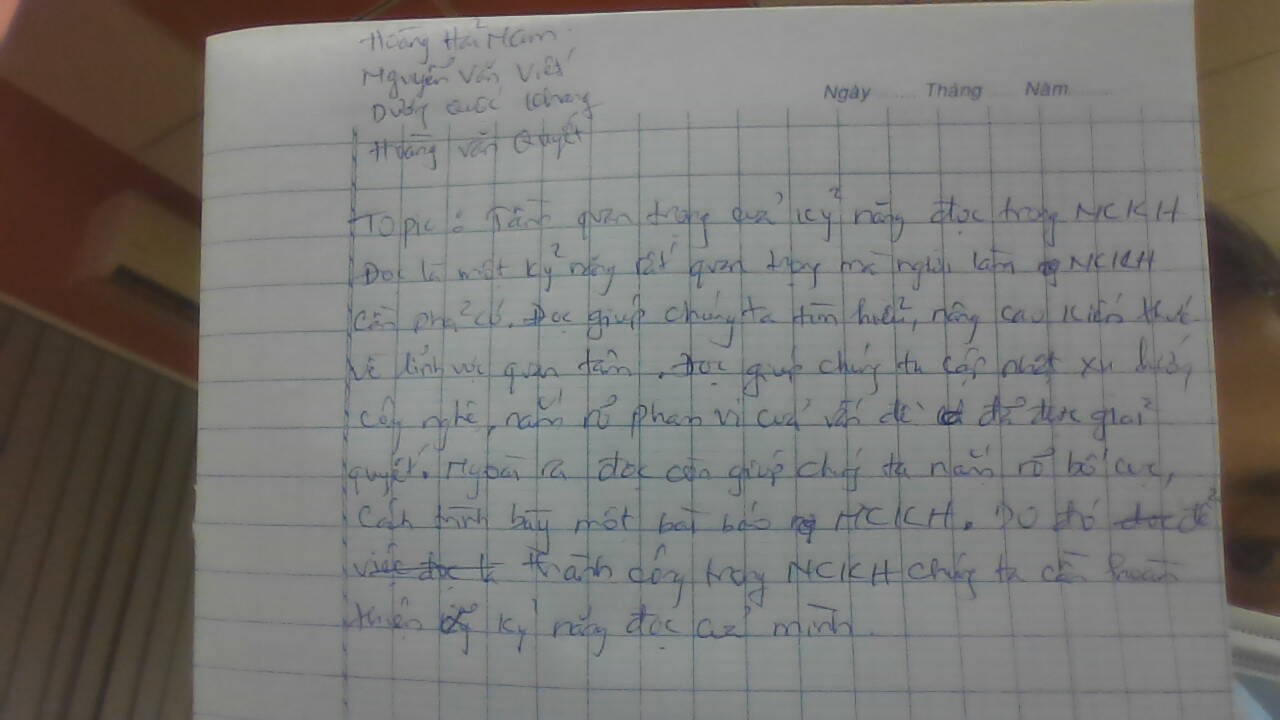 Hoàng Hải Nam
Nguyễn Văn Việt
Dương Quốc Khang
Hoàng Văn Quyết
Ngày Tháng Năm
Topic: Tầm quan trọng của kỹ năng đọc trong NCKH
Đọc là một kỹ năng rất quan trọng mà người làm NCKH
cần phải có. Đọc giúp chúng ta tìm hiểu, nâng cao kiến thức
về lĩnh vực quan tâm. Đọc giúp chúng ta cập nhật xu hướng
công nghệ, nắm rõ phạm vi của vấn đề đã được giải
quyết. Ngoài ra đọc còn giúp chúng ta nắm rõ bố cục,
cách trình bày một bài báo NCKH. Do đó để
thành công trong NCKH chúng ta cần hoàn
thiện kỹ năng đọc của mình.